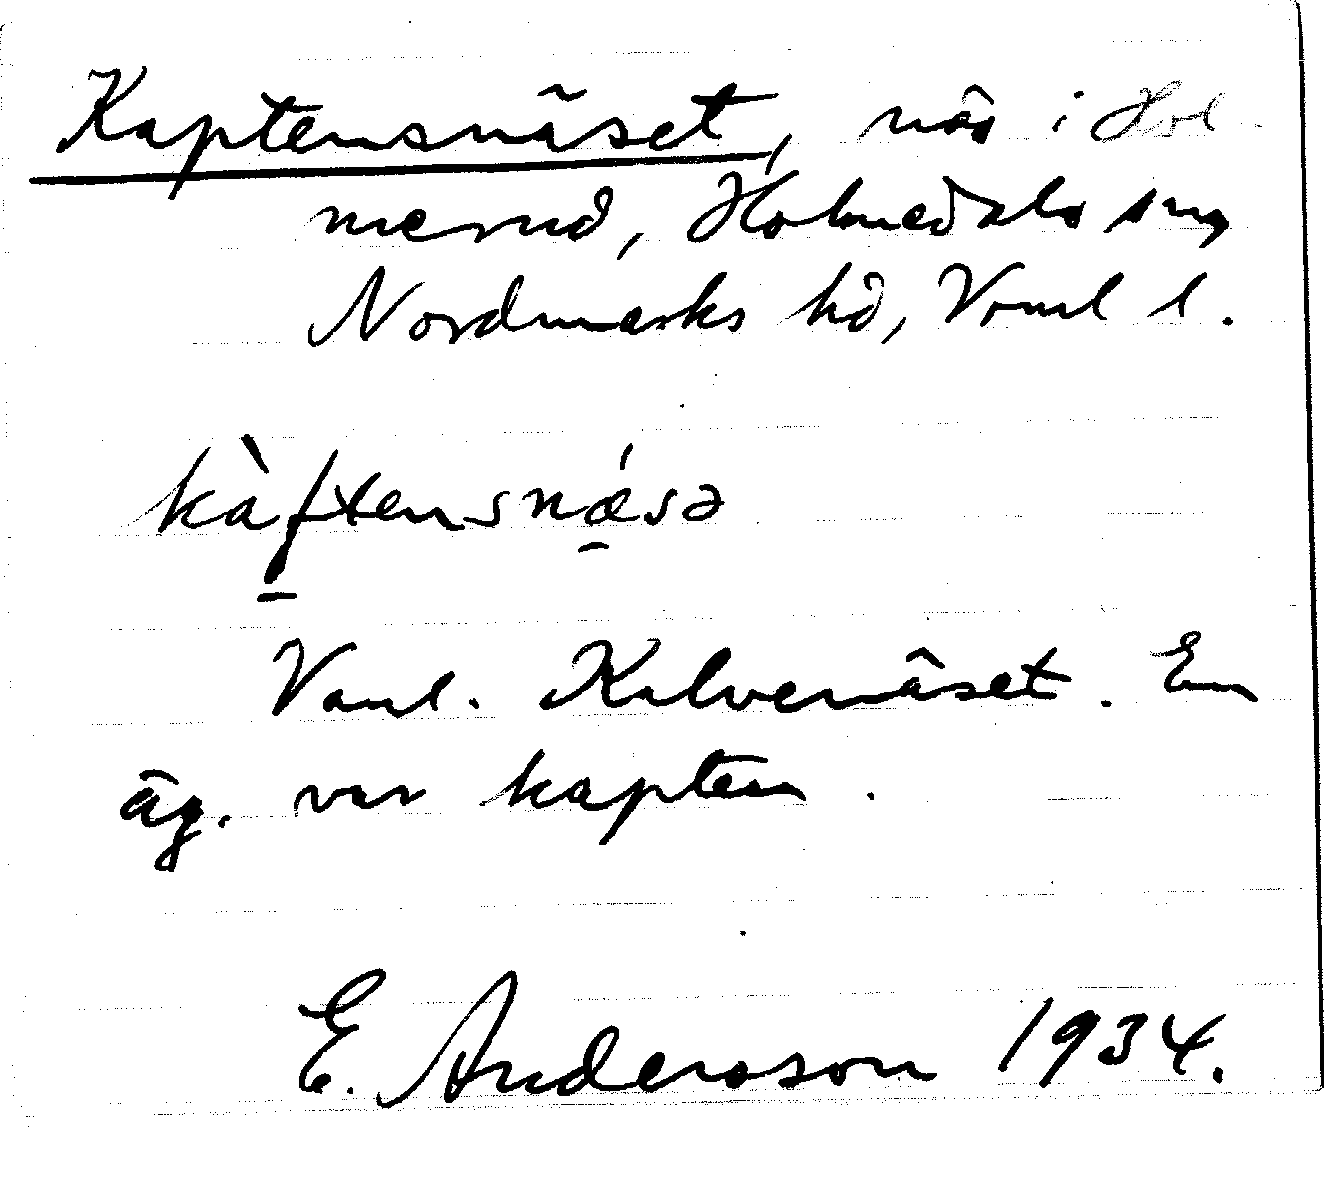 Kaptensnäset, näs i Hol
merud, Holmedals sng
Nordmarks hd, Vrml l.
kàftensnǽsə
Vanl. Kalvenäset. En
äg. var kapten.
E. Andersson 1934.